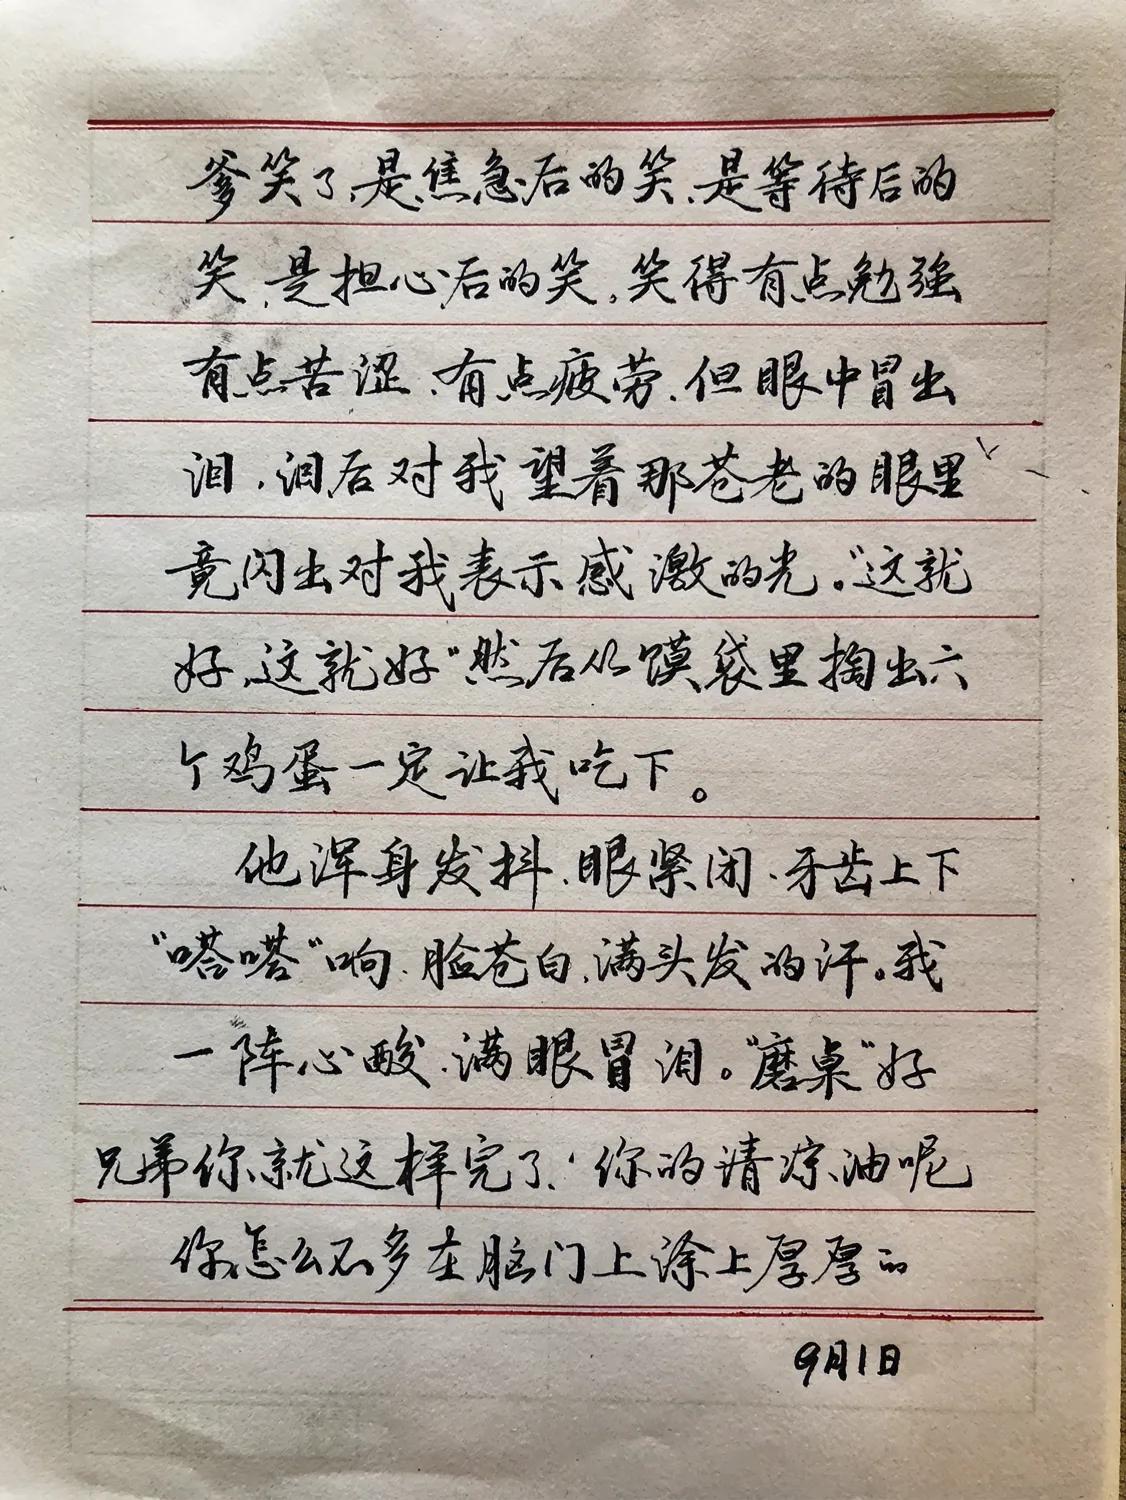 爹笑了、是焦急后的笑、是等待后的
笑、是担心后的笑。笑得有点勉强
有点苦涩、有点疲劳、但眼中冒出
泪、泪后对我望着那苍老的眼里
竟闪出对我表示感激的光。“这就
好、这就好”然后从馍袋里掏出六
个鸡蛋一定让我吃下。
他浑身发抖、眼紧闭、牙齿上下
“嗒嗒”响、脸苍白、满头发的汗。我
一阵心酸、满眼冒泪。“磨桌”好
兄弟你就这样完了、你的清凉油呢
你怎么不多在脑门上涂上厚厚的
9月1日